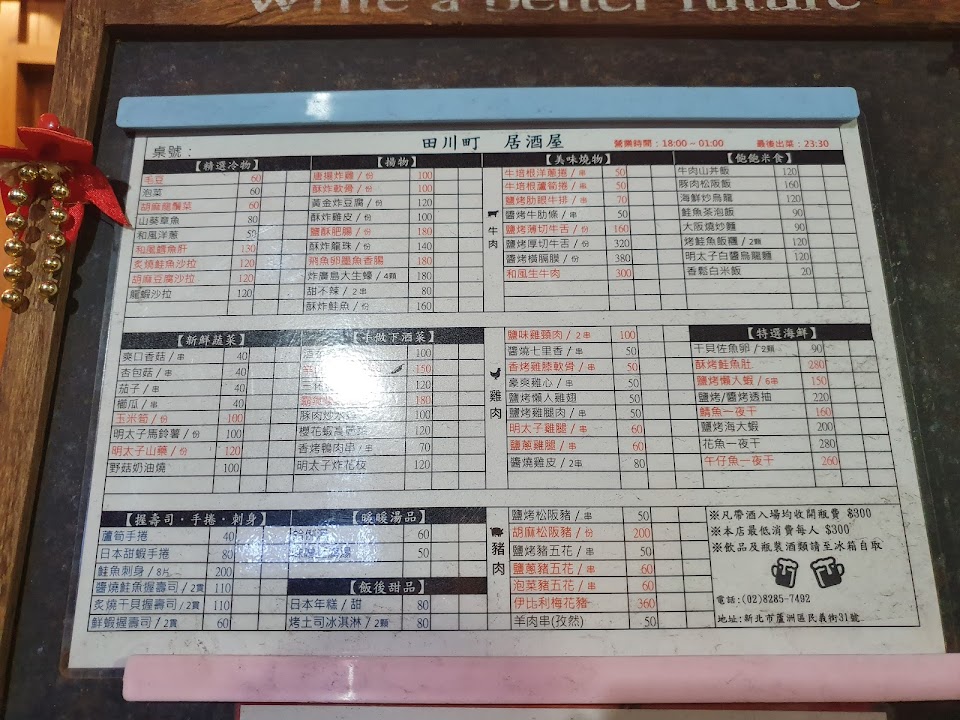 Write a better future
桌號：
田川町 居酒屋
營業時間：18:00 ~ 01:00
最後出菜：23:30
【精選冷物】
毛豆 60
泡菜 60
胡麻龍鬚菜 60
山葵章魚 80
和風洋蔥 50
和風鱈魚肝 130
炙燒鮭魚沙拉 120
胡麻豆腐沙拉 120
龍蝦沙拉 120
【揚物】
唐揚炸雞 / 份 100
酥炸軟骨 / 份 100
黃金炸豆腐 / 份 120
酥炸雞皮 / 份 100
鹽酥肥腸 / 份 180
酥炸龍珠 / 份 140
飛魚卵墨魚香腸 180
炸廣島大生蠔 / 4顆 180
甜不辣 / 2串 80
酥炸鮭魚 / 份 160
【美味燒物】
牛肉
牛培根洋蔥捲 / 串 50
牛培根蘆筍捲 / 串 50
鹽烤肋眼牛排 / 串 70
醬烤牛肋條 / 串 50
鹽烤薄切牛舌 / 份 160
鹽烤厚切牛舌 / 份 320
醬烤橫膈膜 / 份 380
和風生牛肉 300
【飽飽米食】
牛肉山丼飯 120
豚肉松阪飯 160
海鮮炒烏龍 120
鮭魚茶泡飯 90
大阪燒炒麵 90
烤鮭魚飯糰 / 2顆 120
明太子白醬烏龍麵 120
香鬆白米飯 20
【新鮮蔬菜】
爽口香菇 / 串 40
杏包菇 / 串 40
茄子 / 串 40
櫛瓜 / 串 40
玉米筍 / 份 100
明太子馬鈴薯 / 份 100
明太子山藥 / 份 120
野菇奶油燒 100
【手做下酒菜】
100
150
120
180
豚肉炒 120
櫻花蝦高麗菜 120
香烤鴨肉串 / 串 70
明太子炸花枝 120
雞肉
鹽味雞頸肉 / 2串 100
醬燒七里香 / 串 50
香烤雞膝軟骨 / 串 50
豪爽雞心 / 串 50
鹽烤懶人雞翅 50
鹽烤雞腿肉 / 串 50
明太子雞腿 / 串 60
鹽蔥雞腿 / 串 60
醬燒雞皮 / 2串 80
【特選海鮮】
干貝佐魚卵 / 2顆 90
酥烤鮭魚肚 280
鹽烤懶人蝦 / 6串 150
鹽烤/醬烤透抽 220
鯖魚一夜干 160
鹽烤海大蝦 200
花魚一夜干 280
午仔魚一夜干 260
【握壽司・手捲・刺身】
蘆筍手捲 40
日本甜蝦手捲 80
鮭魚刺身 / 8片 200
醬燒鮭魚握壽司 / 2貫 110
炙燒干貝握壽司 / 2貫 110
鮮蝦握壽司 / 2貫 60
【暖暖湯品】
60
50
【飯後甜品】
日本年糕 / 甜 80
烤土司冰淇淋 / 2顆 80
豬肉
鹽烤松阪豬 / 串 50
胡麻松阪豬 / 份 200
鹽烤豬五花 / 串 50
鹽蔥豬五花 / 串 60
泡菜豬五花 / 串 60
伊比利梅花豬 360
羊肉串(孜然) 50
※凡帶酒入場均收開瓶費 $300
※本店最低消費每人 $300
※飲品及瓶裝酒類請至冰箱自取
電話：(02)8285-7492
地址：新北市蘆洲區民義街31號